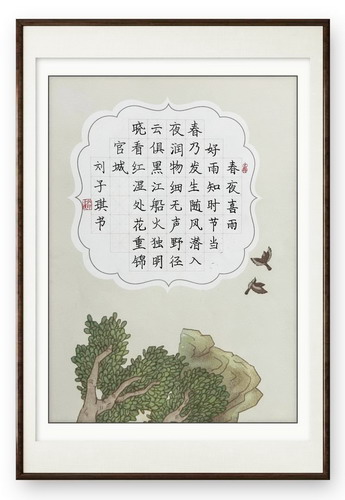 春夜喜雨
好雨知时节当
春乃发生随风潜入
夜润物细无声野径
云俱黑江船火独明
晓看红湿处花重锦
官城
刘子琪书